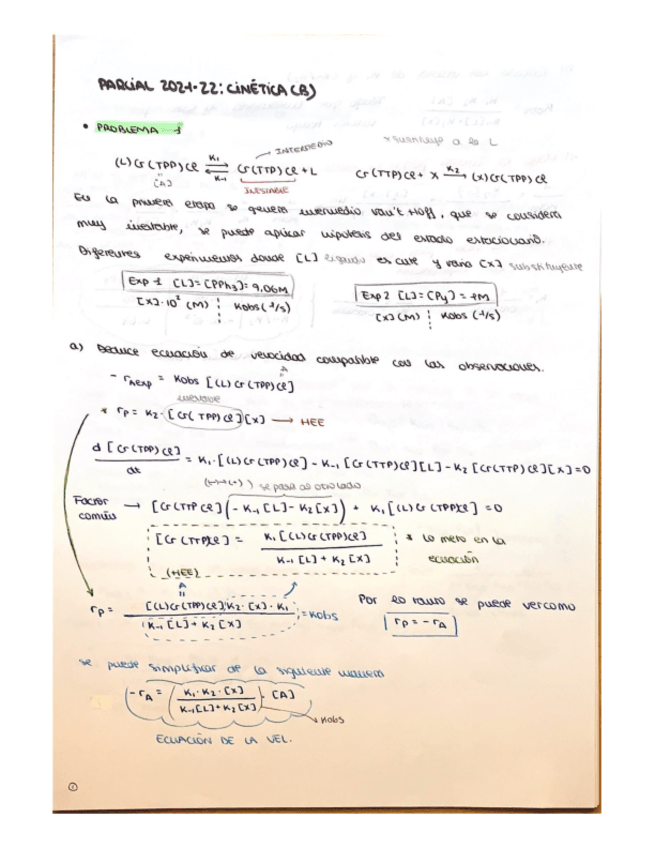 PARCIAL 2021-22: CINÉTICA (B)
• PROBLEMA 1
INTERMEDIO
*sustituyo a la L
(L)Cr(TPP)Cl ⇌ Cr(TTP)Cl + L
K1
K-1
Cr(TTP)Cl + X →K2 (X)Cr(TPP)Cl
[A]
INESTABLE
En la primera etapa se genera intermedio Van't Hoff, que se considera
muy inestable, se puede aplicar hipótesis del estado estacionario.
Diferentes experimentos donde [L] ligando es cute y varía [X] substituyente
Exp 1 [L]=[PPh3]= 9,06M
[X]·10² (M) ¦ Kobs (1/s)
Exp 2 [L]=[Py] = 1M
[X] (M) ¦ Kobs (1/s)
a) Deduce ecuación de velocidad compatible con las observaciones.
- rAexp = Kobs [(L)Cr(TPP)Cl]
A
* rp = K2 · [Cr(TPP)Cl][X] → HEE
d[Cr(TPP)Cl]/dt = K1·[(L)Cr(TPP)Cl] - K-1 [Cr(TTP)Cl][L] - K2 [Cr(TTP)Cl][X] = 0
se pasa al otro lado
Factor común → [Cr(TTP)Cl](- K-1[L] - K2[X]) + K1[(L)Cr(TPP)Cl] = 0
[Cr(TPP)Cl] = K1[(L)Cr(TPP)Cl] / K-1[L] + K2[X]
(HEE)
* Lo meto en la
ecuación
A
rp = [(L)Cr(TPP)Cl]·K2·[X]·K1 / K-1[L] + K2[X] = Kobs
Por lo tanto se puede ver como
rp = - rA
Se puede simplificar de la siguiente manera
- rA = (K1·K2·[X] / K-1[L]+K2[X]) · [A]
Kobs
ECUACIÓN DE LA VEL.
1